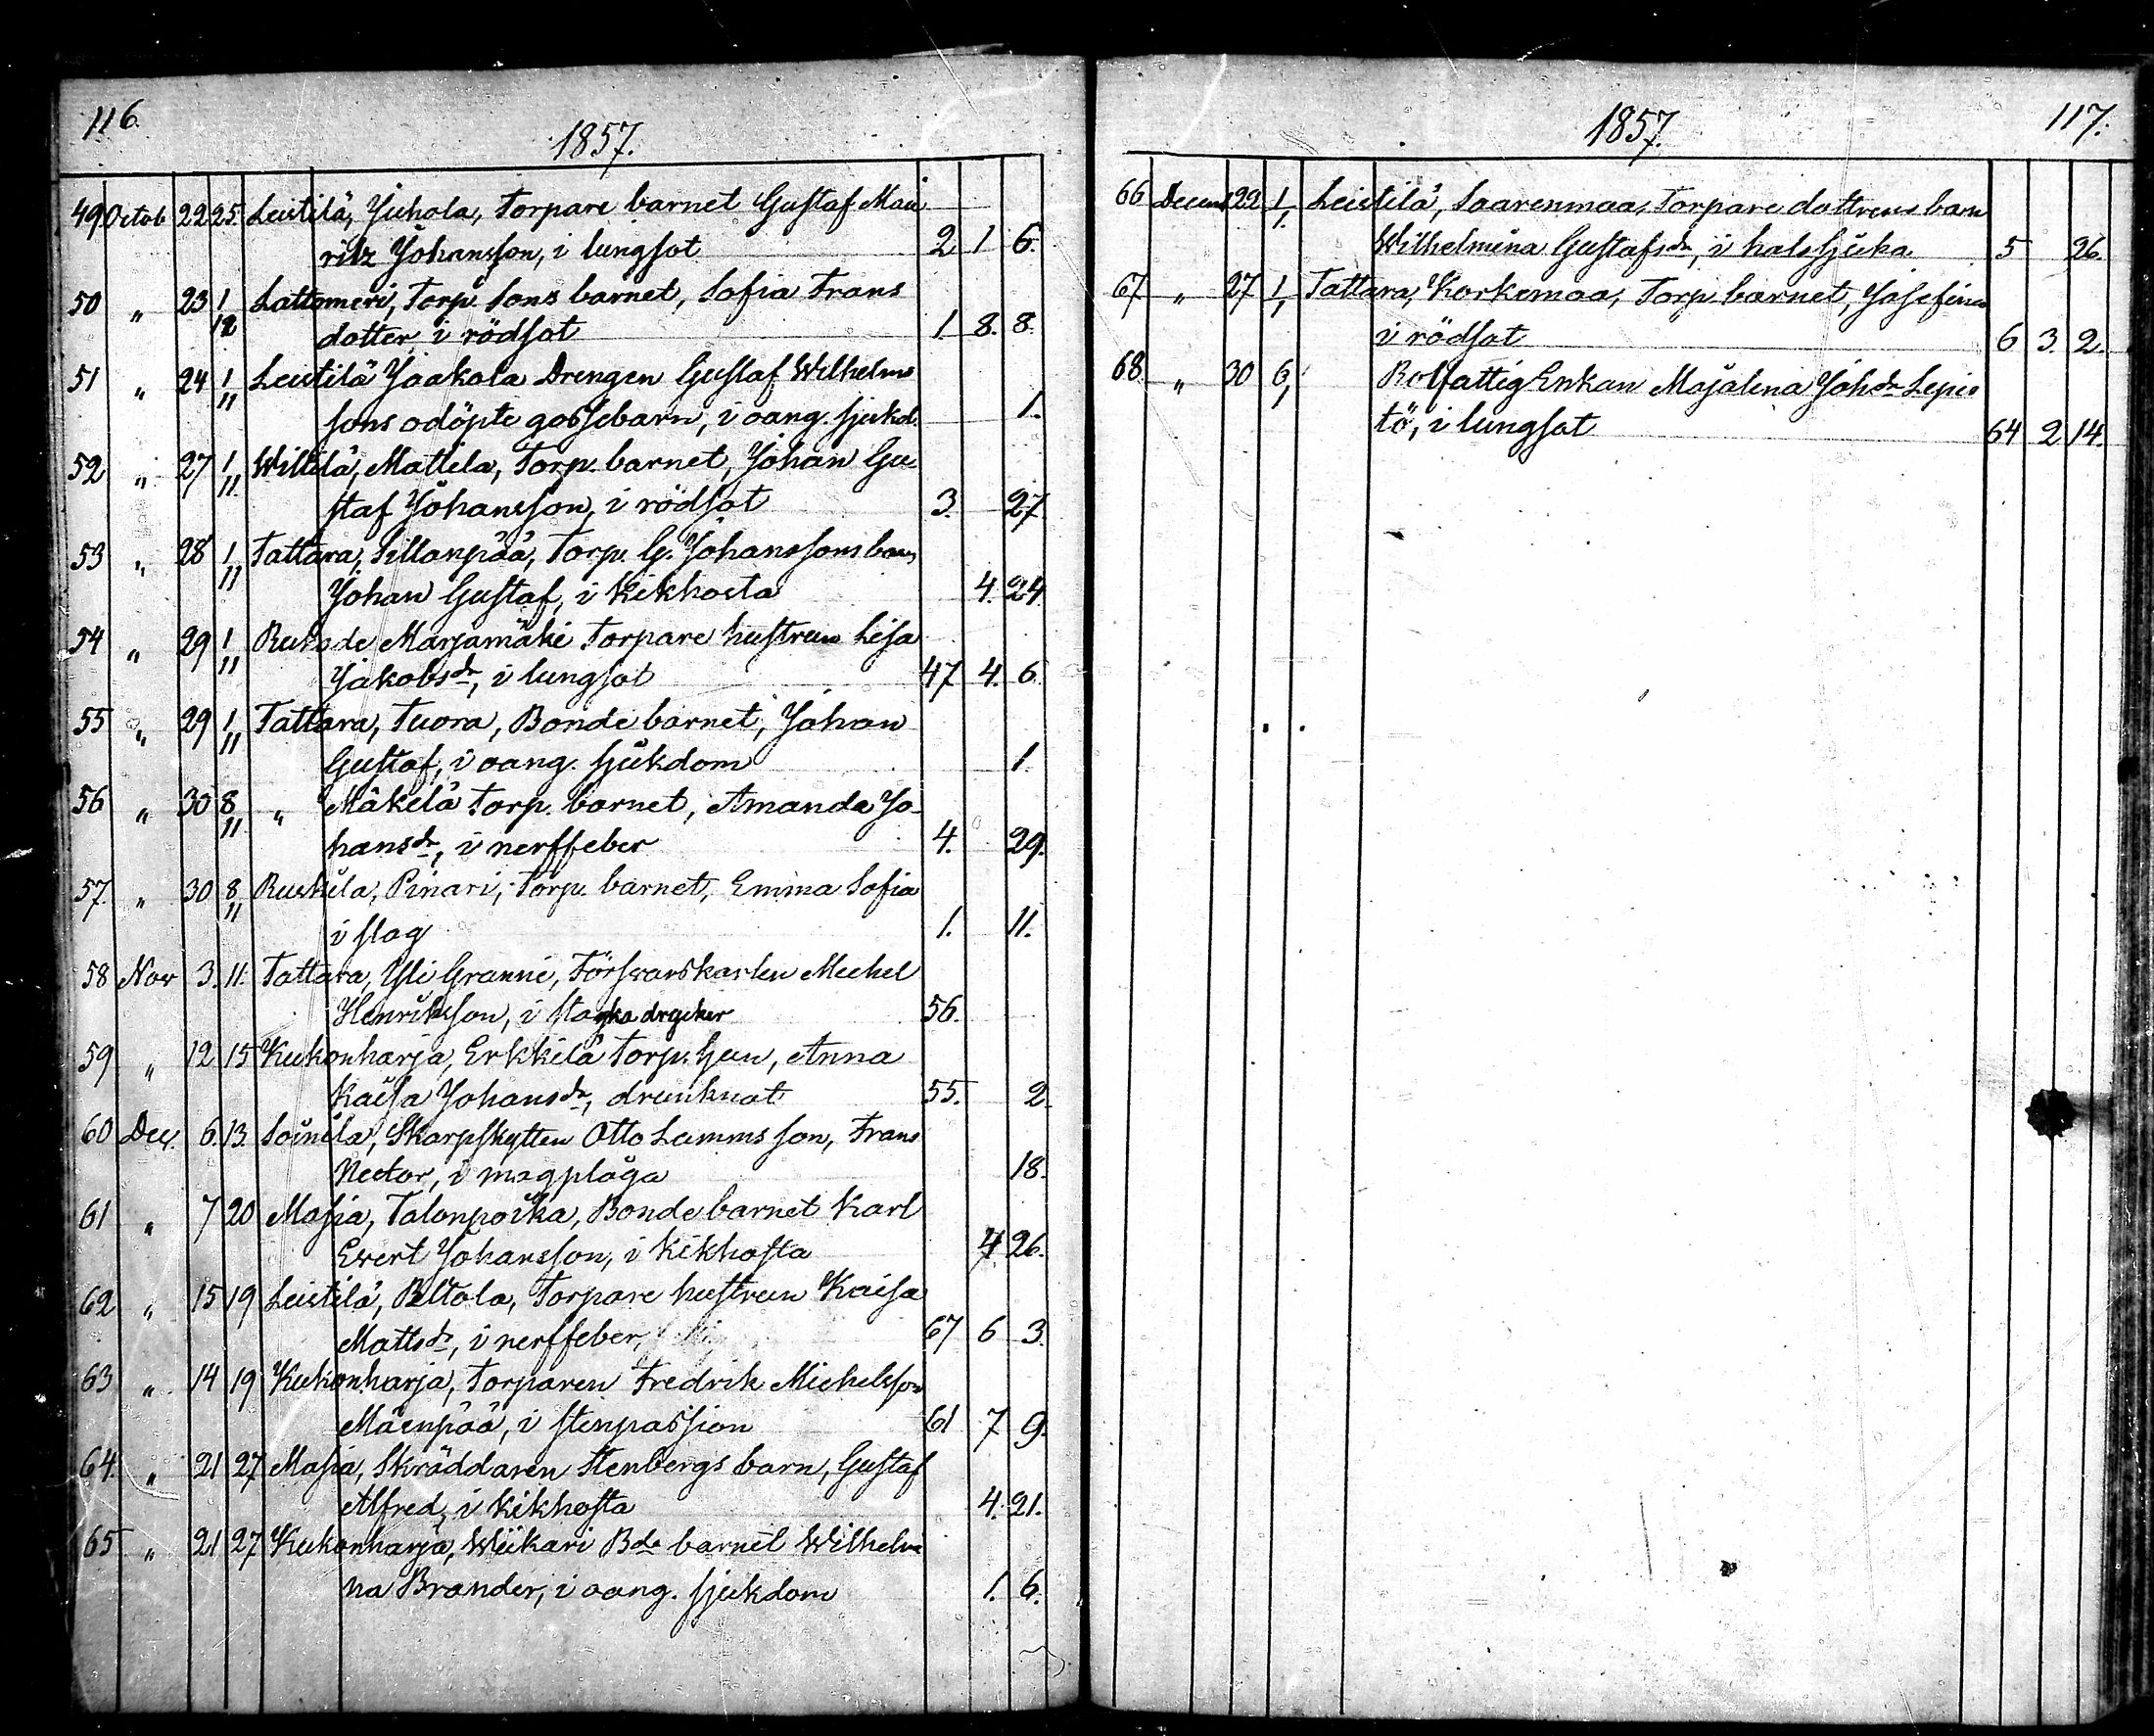 116.
1857.
49 Octob 22 25 Leistilä, Juhola, Torpare barnet Gustaf Mau
ritz Johansson, i lungsot 2 1 6.
50 " 23 1/12 Lattomeri, Torp. Sons barnet, Sofia Frans
dotter, i rödsot 1. 8. 8.
51 " 24 1/11 Leistilä Jaakola Drengen Gustaf Wilhelms
sons odöpte gossebarn, i oang. sjukd. 1.
52 " 27 1/11 Wittilä, Mattila, Torp. barnet, Johan Gu
staf Johansson, i rödsot 3. 27
53 " 28 1/11 Tattara, Sillanpää, Torp. G. Johanssons barn
Johan Gustaf, i kikhosta 4. 24.
54 " 29 1/11 Marjamäki Torpare hustrun Lisa
Jakobsdr, i lungsot 47 4. 6.
55 " 29 1/11 Tattara, Tuora, Bonde barnet, Johan
Gustaf, i oang. sjukdom 1.
56 " 30 8/11 " Mäkelä Torp. barnet, Amanda Jo-
hansdr, i nerffeber 4. 29.
57. " 30 8/11 Ruskila, Pinari, Torp. barnet, Emma Sofia
i slag 1. 11.
58 Nov 3. 11. Tattara, Yli Granni, Försvarskarlen Michel
Henriksson, i starka drycker 56.
59 " 12 15 Kukonharja, Erkkilä Torp. hun, Anna
Kaisa Johansdr, drunknat 55. 2.
60 Dec. 6. 13. Soinila, Skarpskytten Otto Lamms son, Frans
Nector, i magplåga 18.
61 " 7 20 Masia, Talonpoika, Bonde barnet Karl
Evert Johansson, i kikhosta 4 26.
62 " 15 19 Leistilä, Peltola, Torpare hustrun Kaisa
Mattsdr, i nerffeber, 67 6 3.
63 " 14 19 Kukonharja, Torparen Fredrik Michelsson
Mäenpää, i stenpassion 61 7 9.
64. " 21 27 Masia, Skräddaren Stenbergs barn, Gustaf
Alfred, i kikhosta 4. 21.
65 " 21 27 Kukonharja, Wiikari Bde barnet Wilhelmi
na Brander, i oang. sjukdom 1. 6.
1857.
117.
66 Decem 22 1/1. Leistilä, Saarenmaa, Torpare dottrens barn
Wilhelmina Gustafsdr, i halssjuka 5 26.
67 " 27 1/1 Tattara, Korkemaa, Torp. barnet, Josefina
i rödsot 6 3. 2.
68. " 30 6/1 Rotfattig Enkan Majalena Johsdr Lepis
tö, i lungsot 64 2 14.